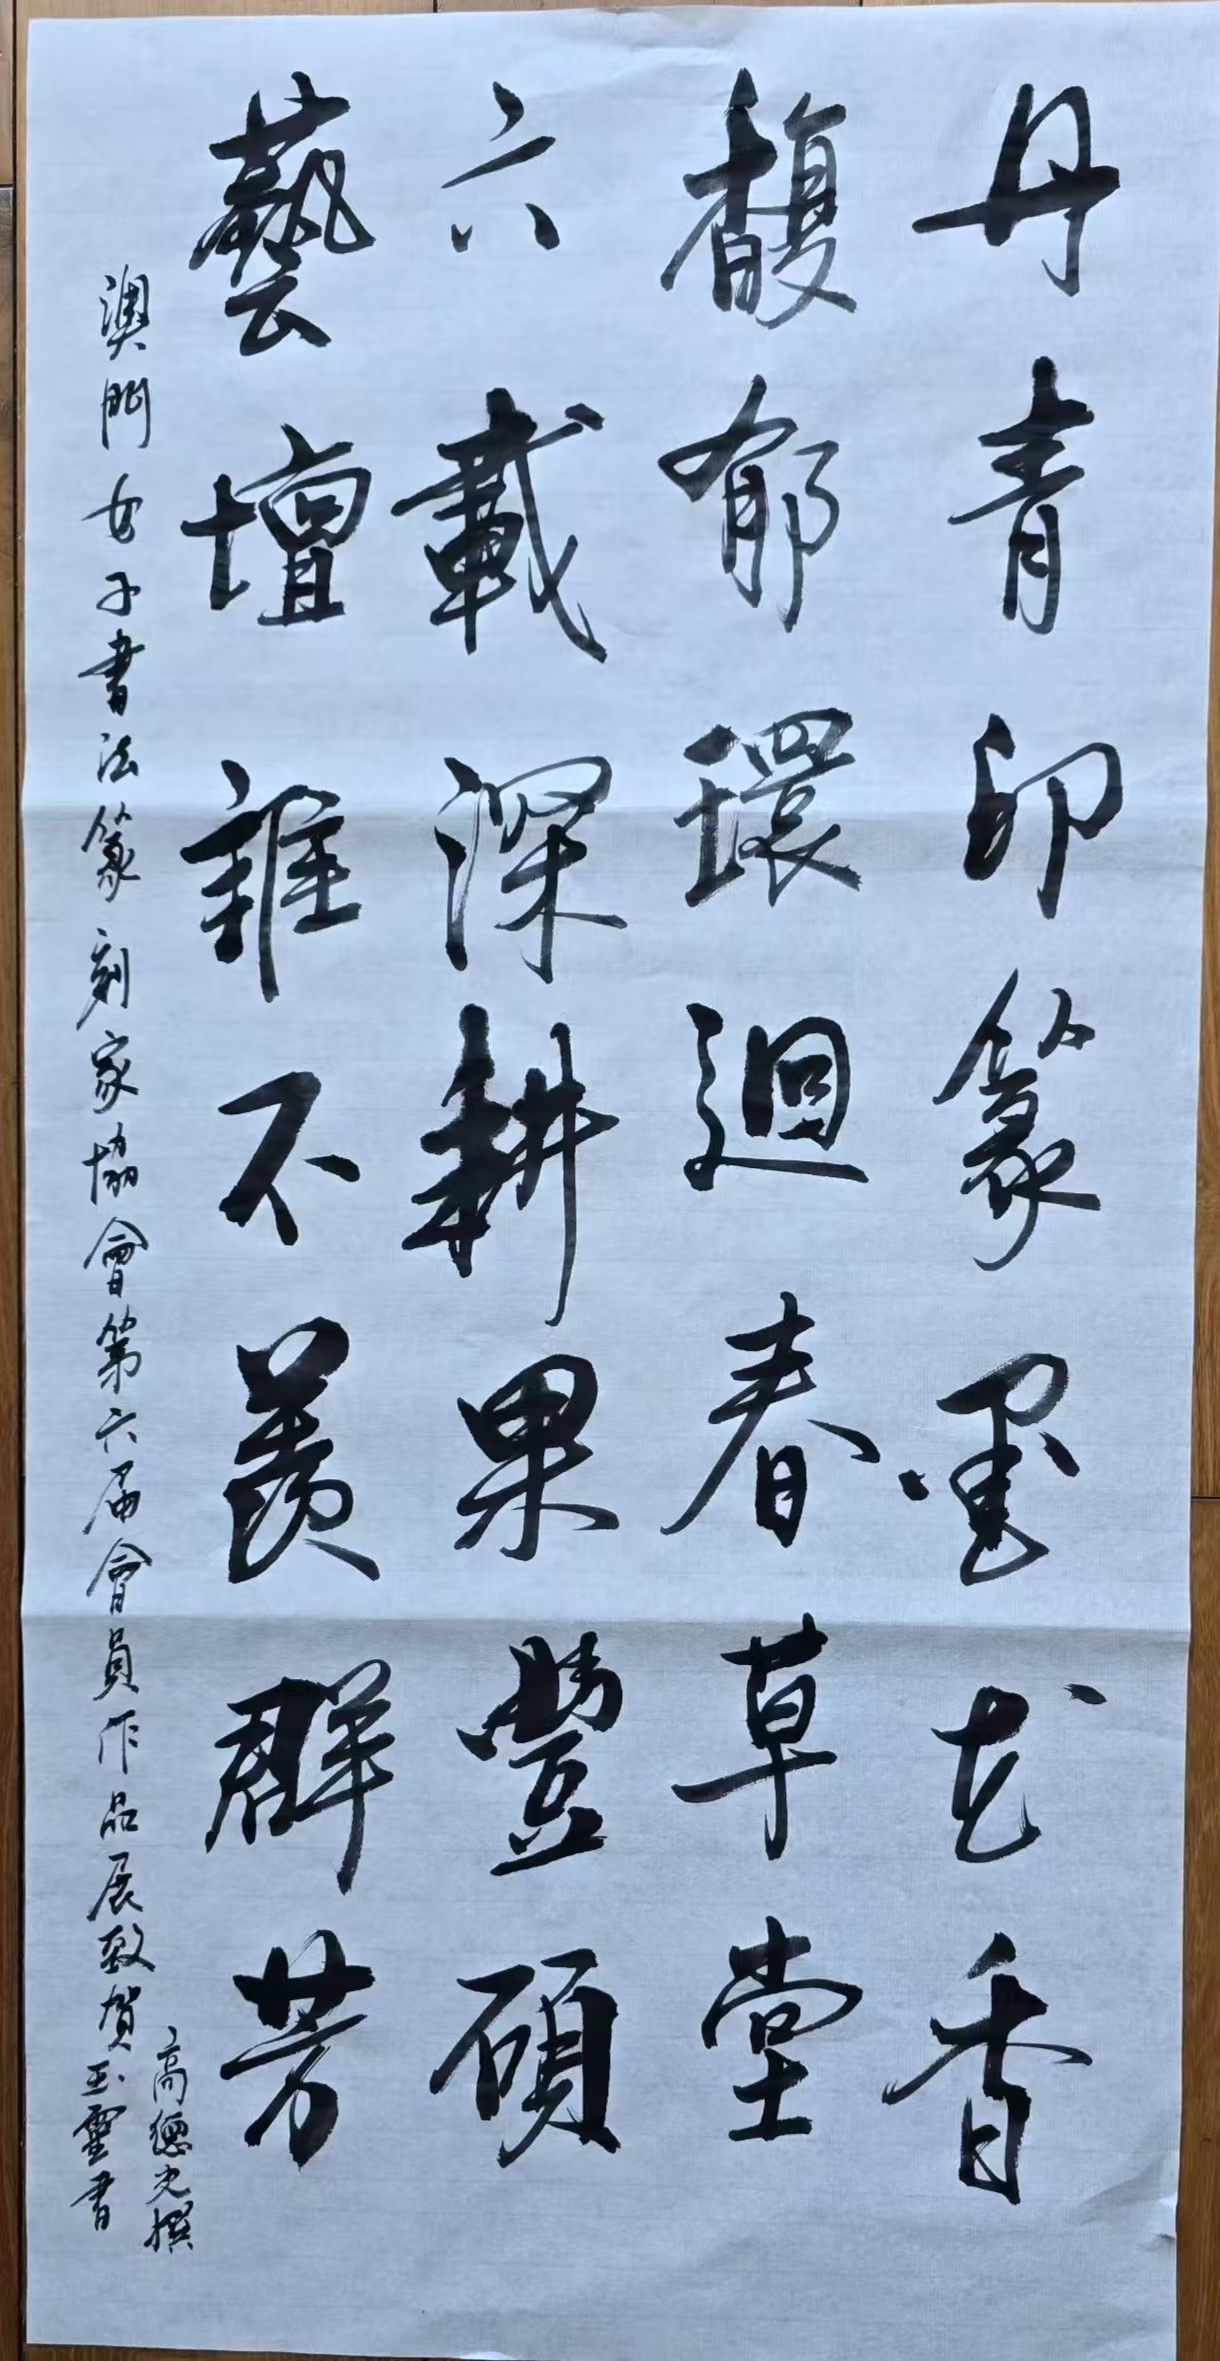 丹青印篆墨花香
馥郁環迴春草堂
六載深耕果豐碩
藝壇誰不羨群芳
澳門女子書法篆刻家協會第六届會員作品展致賀
高德光撰
玉靈書